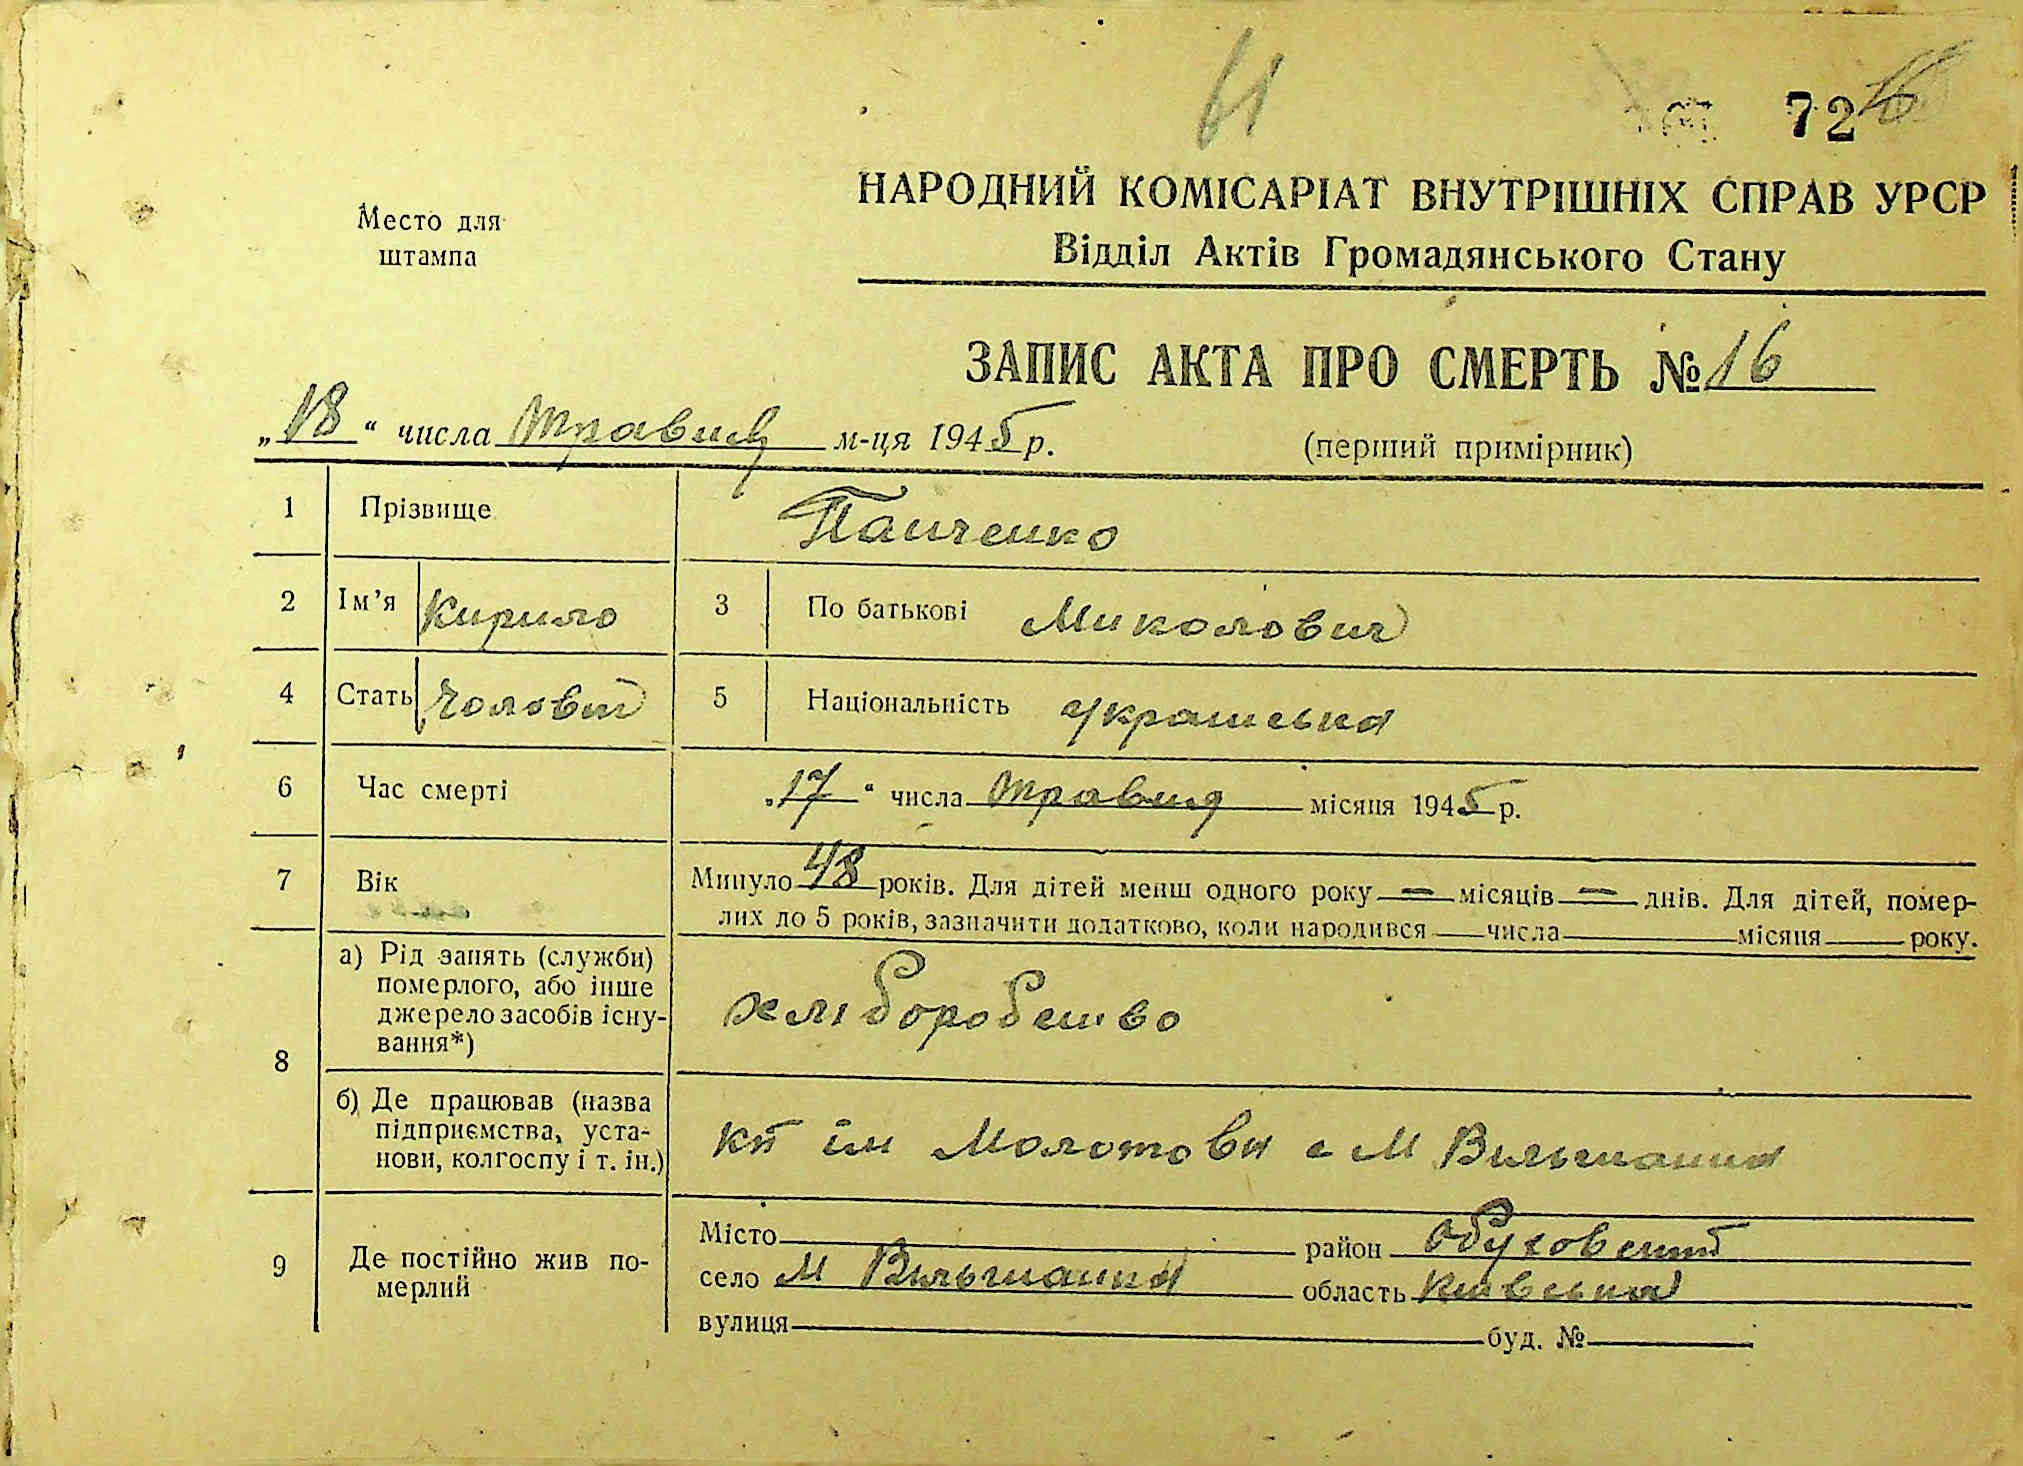 72
НАРОДНИЙ КОМІСАРІАТ ВНУТРІШНІХ СПРАВ УРСР
Відділ Актів Громадянського Стану
Место для
штампа
ЗАПИС АКТА ПРО СМЕРТЬ № 16
„18“ числа травня м-ця 1945 р.
(перший примірник)
1 Прізвище Панченко
2 Ім’я Кирило 3 По батькові Миколович
4 Стать чоловіч 5 Національність українська
6 Час смерті „17“ числа травня місяця 1945 р.
7 Вік Минуло 48 років. Для дітей менш одного року — місяців — днів. Для дітей, помер-
лих до 5 років, зазначити додатково, коли народився числа місяця року.
8 а) Рід занять (служби)
померлого, або інше
джерело засобів існу-
вання*)
хліборобство
б) Де працював (назва
підприємства, уста-
нови, колгоспу і т. ін.)
кп ім Молотова с М Вільшанка
9 Де постійно жив по-
мерлий
Місто район Обуховский
село М Вільшанка область Київська
вулиця буд. №